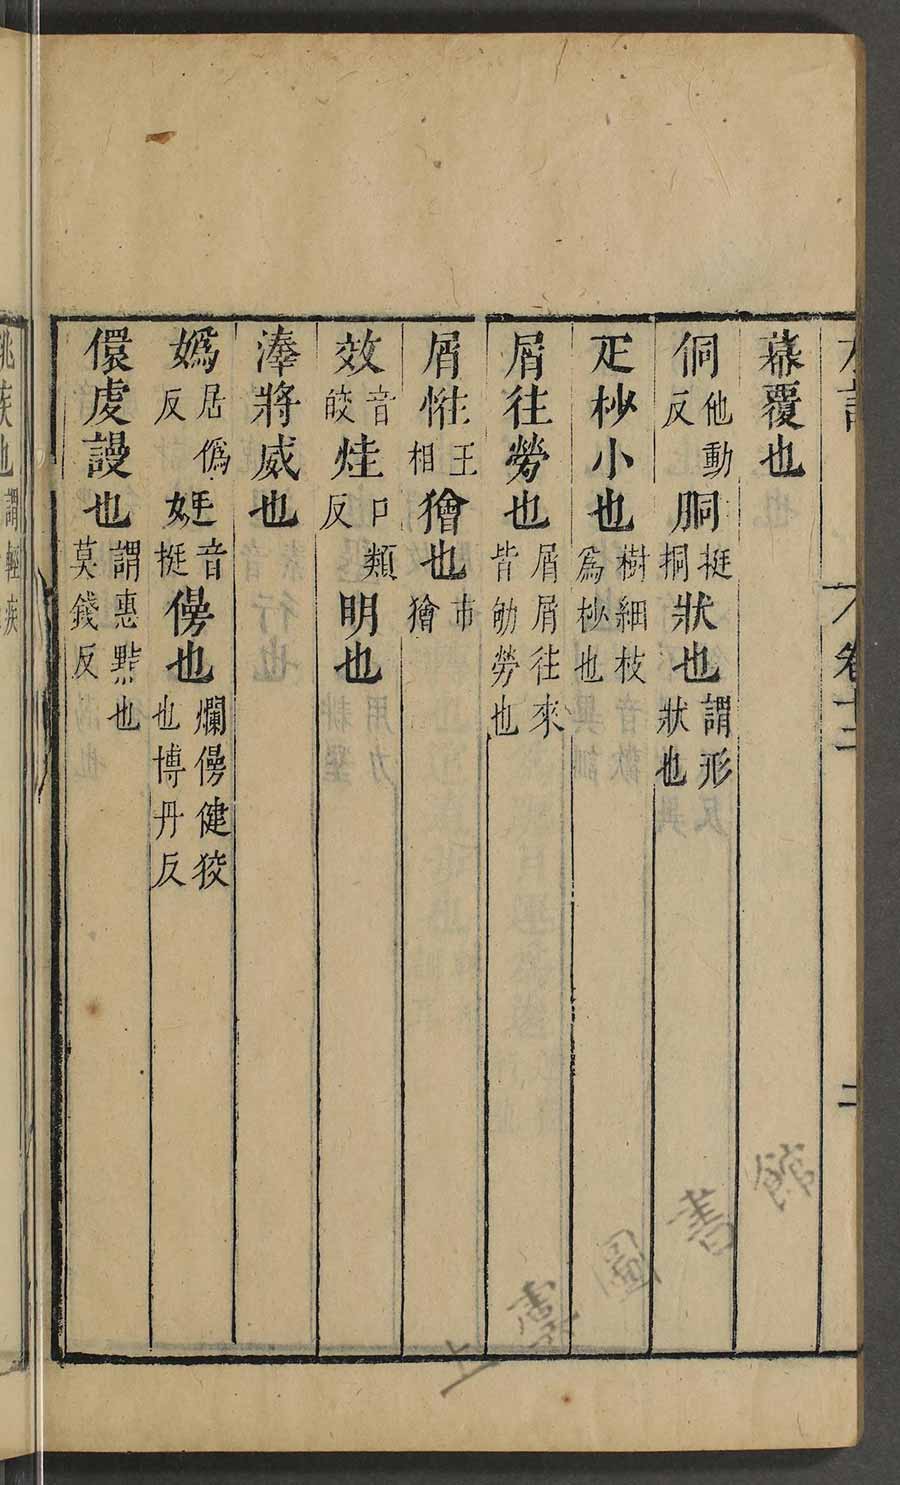 卷十二
二
幕覆也
侗他動反胴挺挏狀也謂形狀也
疋杪小也樹細枝爲杪也
屑往勞也屑屑往來皆劬勞也
屑惟王相獪也市獪
效音皎烓口類反明也
漨將威也
嬀居僞反娗音挺僈也爛僈健狡也博丹反
儇虔謾也謂惠黠也莫錢反
上海圖書館